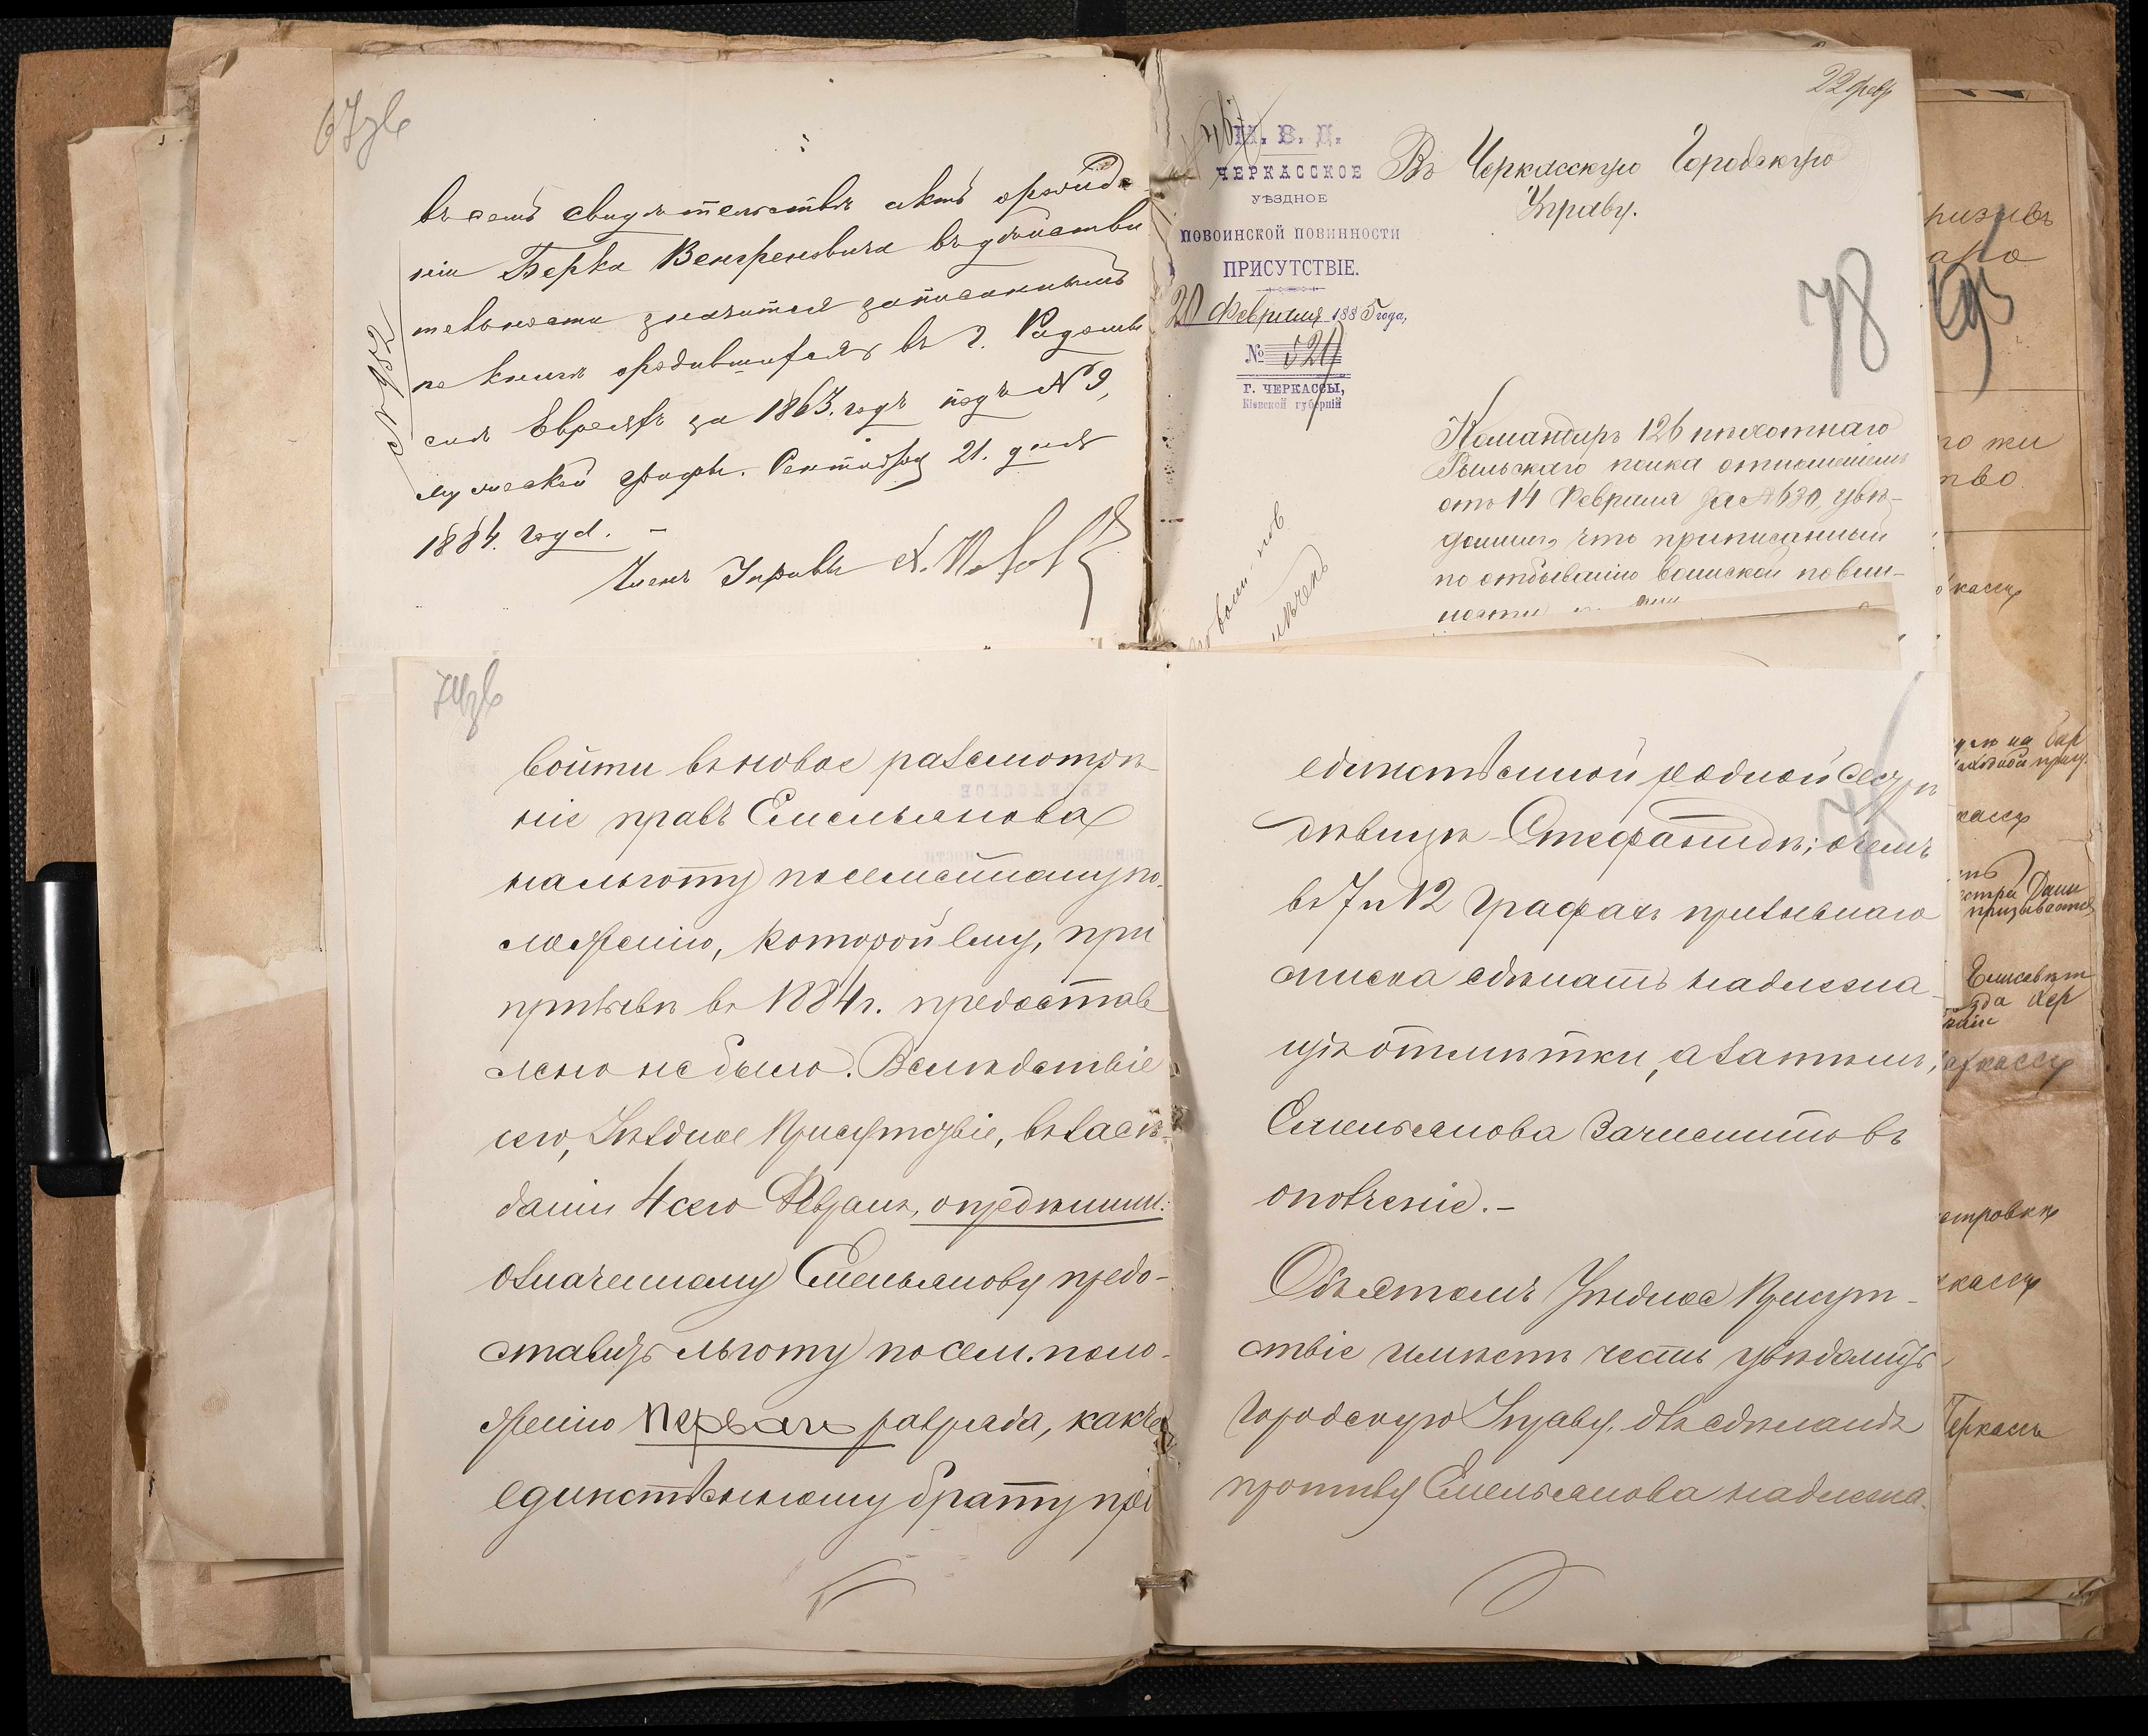 67зв
въ семъ свидѣтельствѣ актъ о рожде-
ніи Берка Венгреновича въ дѣйстви
тельности значится записаннымъ
по книгѣ родившихся въ г. Радомы
слѣ Евреяхъ за 1863. годъ подъ № 9,
мужеской графы. Сентября 21. дня
1884. года. –
Членъ Управы
№ 952
22 февр
М. В. Д.
ЧЕРКАССКОЕ
УѢЗДНОЕ
ПО ВОИНСКОЙ ПОВИННОСТИ
ПРИСУТСТВІЕ.
20 Февраля 1885 года,
№ 521
Г. ЧЕРКАССЫ,
Кіевской губерніи
Въ Черкасскую Городскую
Управу.
78
Командиръ 126 пѣхотнаго
Рыльскаго полка отношеніемъ
отъ 14 Февраля за № 630, увѣ-
домилъ, что приписанный
по отбыванію воинской повин-
ности
74зв
войти въ новое разсмотрѣ
ніе правъ Емельянова
на льготу по семейному по-
ложенію, которой ему, при
призывѣ въ 1884 г. предостав
лено не было. Вслѣдствіе
сего, Уѣздное Присутствіе, въ засѣ-
даніи 4 сего Февраля, опредѣлили:
означенному Емельянову предо-
ставить льготу по сем. поло-
женію перваго разряда, какъ
единственному брату при
единственной родной сестрѣ
дѣвицѣ Стефанидѣ; о чемъ
въ 7 и 12 графахъ призывнаго
списка сдѣлать надлежа-
щія отмѣтки, а затѣмъ,
Емельянова зачислить въ
ополченіе. –
Объ этомъ Уѣздное Присут-
ствіе имѣетъ честь увѣдомить
Городскую Управу, для сдѣланія
противу Емельянова надлежа-